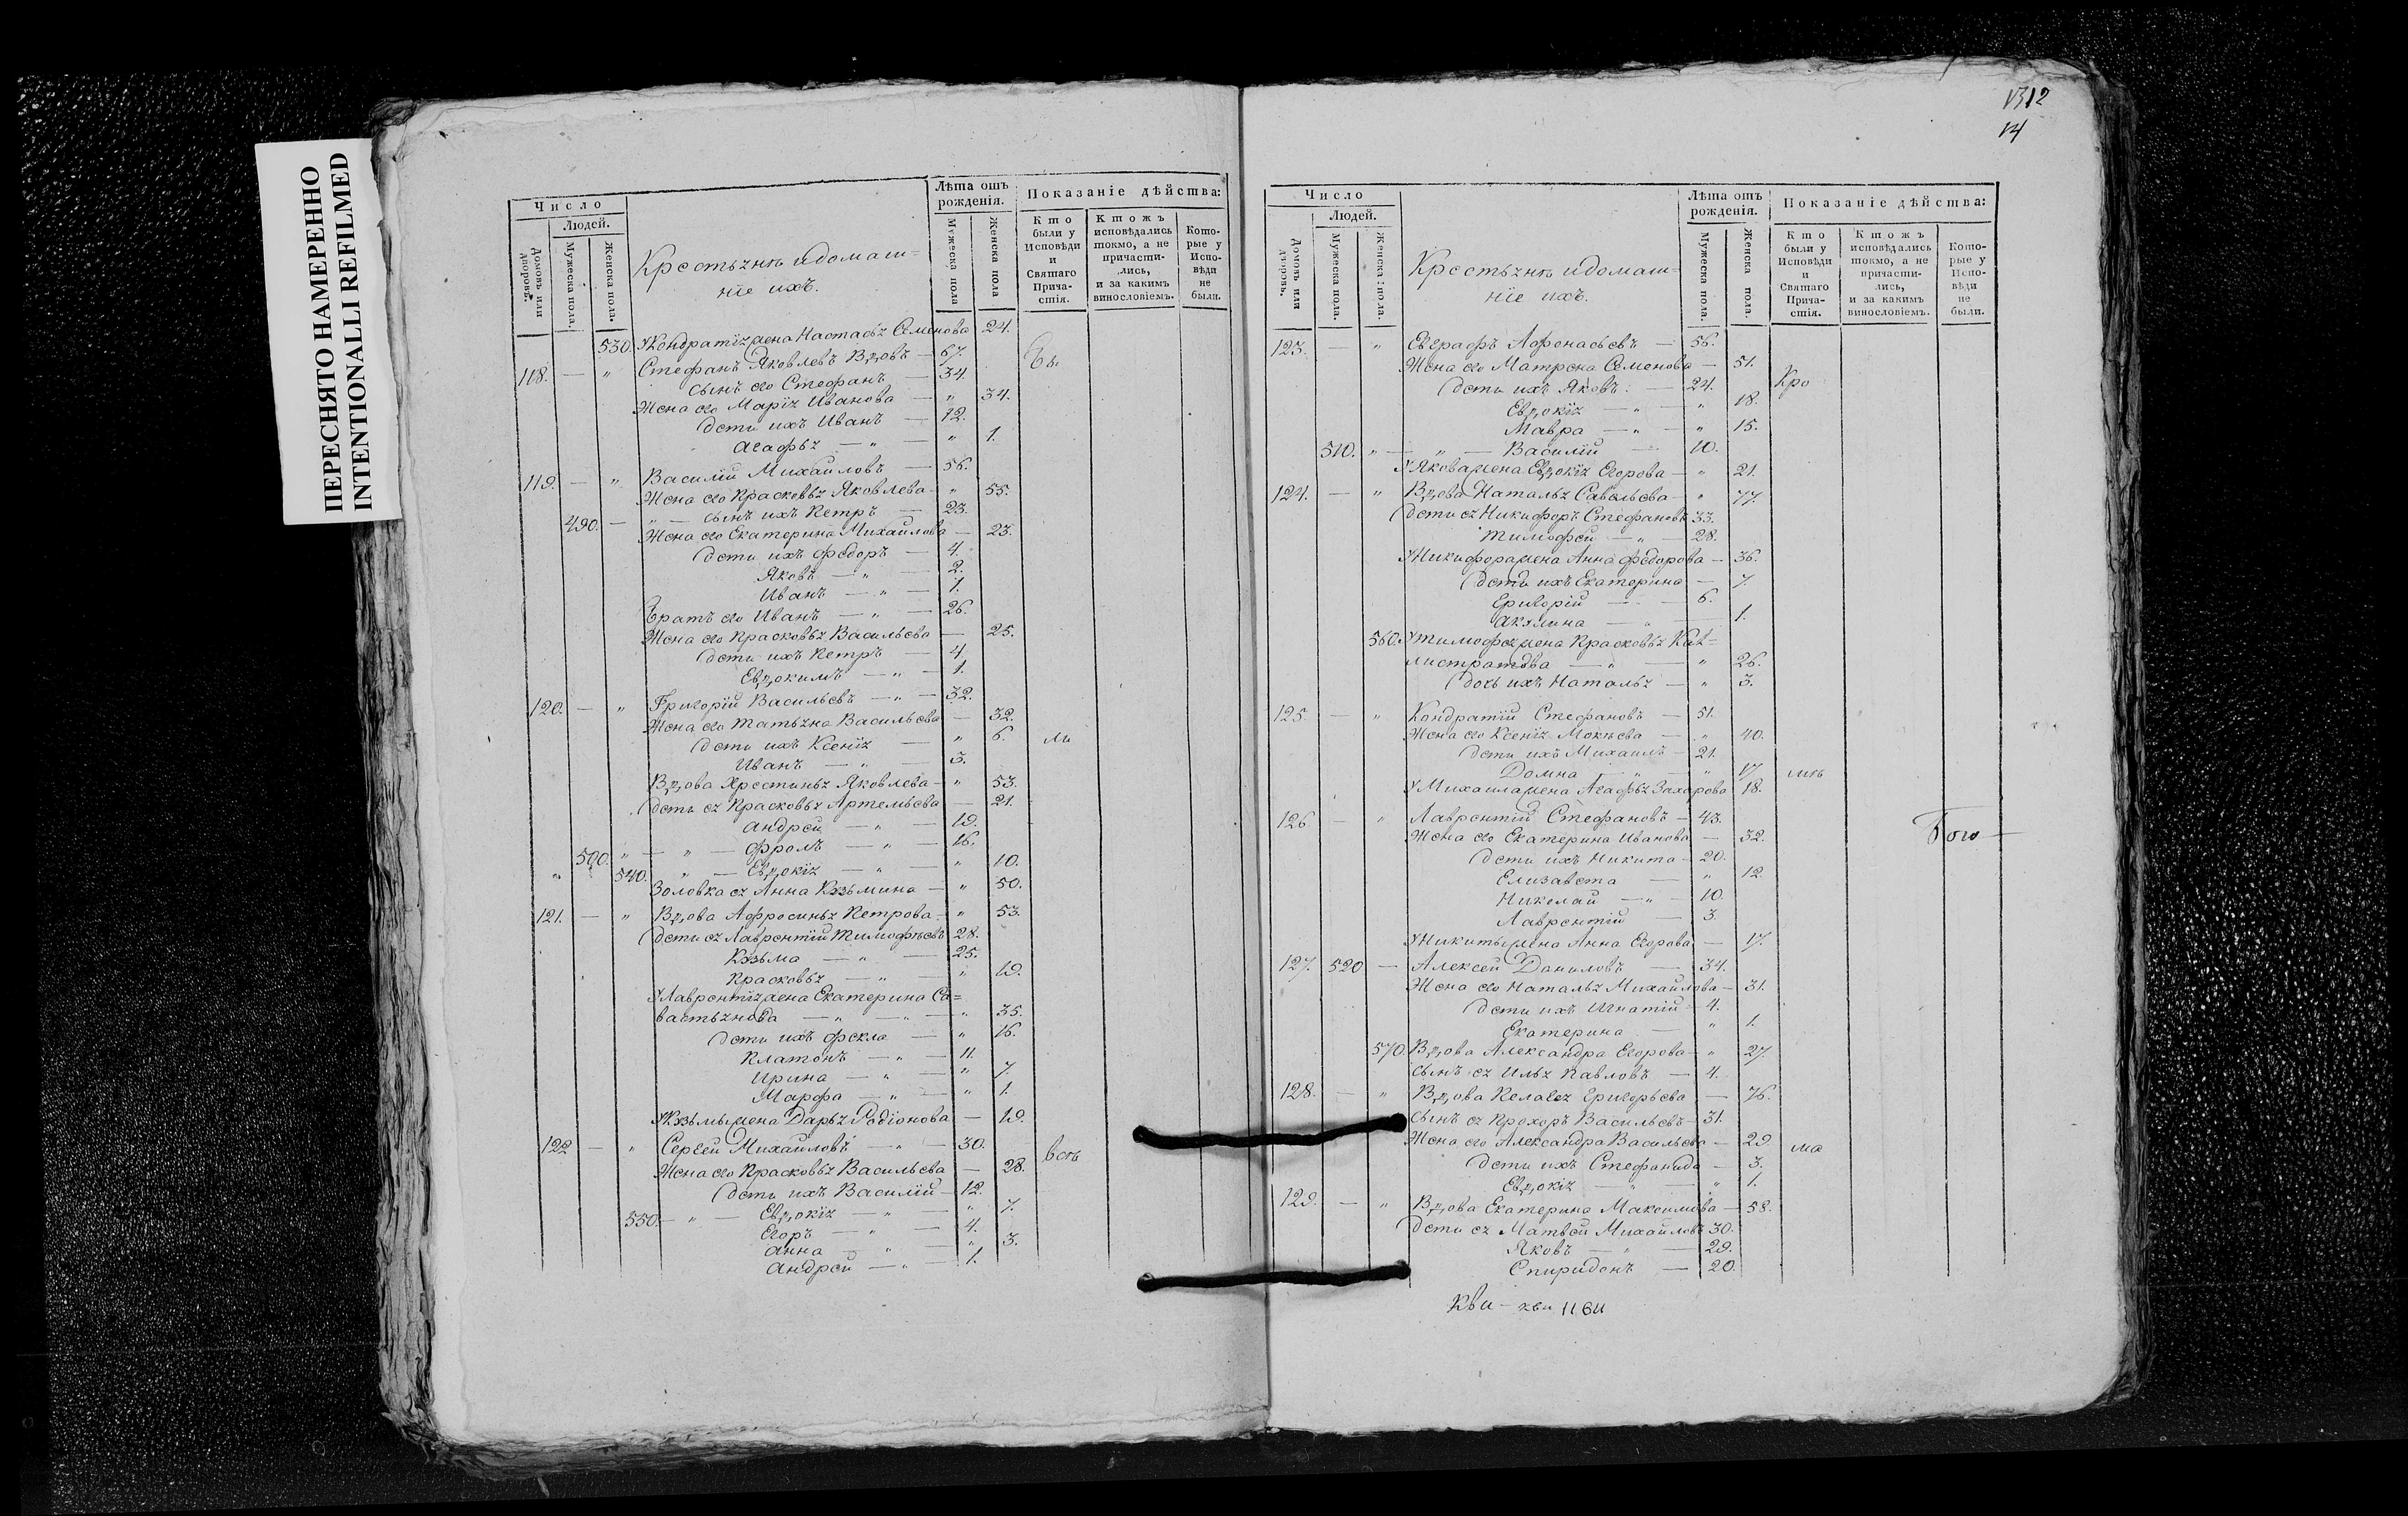 ПЕРЕСНЯТО НАМЕРЕННО
INTENTIONALLI REFILMED
Число
Людей.
Домовъ или дворовъ.
Мужеска пола.
Женска пола.
Крестьянѣ и домаш=
ніе ихъ.
Лѣта отъ рожденія.
Мужеска пола
Женска пола
Показаніе дѣйства:
Кто были у Исповѣди и Святаго Причастія.
Ктожъ исповѣдались токмо, а не причастились, и за какимъ винословіемъ.
Которые у Исповѣди не были.
530. У Кондратія жена Настасья Семенова 24.
118. — „ Стефанъ Яковлевъ вдовъ — 67.
Сынъ его Стефанъ — 34.
Жена его Марія Иванова — „ 34.
Дети ихъ Иванъ — 12.
Агафья — „ — „ 1.
Бы
119. — „ Василій Михайловъ — 56.
Жена его Прасковья Яковлева „ 55.
490. — „ — Сынъ ихъ Петръ — 23.
Жена его Екатерина Михайлова — 23.
Дети ихъ Федоръ — 4.
Яковъ — „ — 2.
Иванъ — „ — 1.
Братъ его Иванъ — „ — 26.
Жена его Прасковья Васильева — 25.
Дети ихъ Петръ — 4.
Евдокимъ — „ — 1.
120. — „ Григорій Васильевъ — „ — 32.
Жена его Татьяна Васильева — 32.
Дети ихъ Ксенія — „ 6.
ли
Иванъ — „ — 3.
Вдова Хрестинья Яковлева — „ 53.
Дети ея Прасковья Артемьева — 21.
Андрей — „ — 19.
500. „ — „ — Фролъ — „ — 16.
„ 540. „ — Евдокія — „ — „ 10.
Золовка ея Анна Кузьмина — „ 50.
121. — „ Вдова Афросинья Петрова — „ 53.
Дети ея Лаврентій Тимофѣевъ 28.
Кузьма — „ — 25.
Прасковья — „ — „ 19.
У Лаврентія жена Екатерина Са=
вастьянова — „ — „ — „ 35.
Дети ихъ Фекла — „ 16.
Платонъ — „ — 11.
Ирина — „ — „ 7.
Марфа — „ — „ 1.
У Кузьмы жена Дарья Родіонова — 19.
122 — „ Сергей Михайловъ — „ — 30.
всѣ
Жена его Прасковья Васильева — 28.
Дети ихъ Василій — 12.
550. — „ — Евдокія — „ — „ 7.
Егоръ — „ — 4.
Анна — „ — „ 3.
Андрей — „ — 1.
1312
14
Число
Людей.
Домовъ или дворовъ.
Мужеска пола.
Женска пола.
Крестьянѣ и домаш=
ніе ихъ.
Лѣта отъ рожденія.
Мужеска пола.
Женска пола.
Показаніе дѣйства:
Кто были у Исповѣди и Святаго Причастія.
Ктожъ исповѣдались токмо, а не причастились, и за какимъ винословіемъ.
Которые у Исповѣди не были.
123. — „ Евграфъ Афонасьевъ — 56.
Жена его Матрена Семенова — 51.
Дети ихъ Яковъ. — 24.
Кро
Евдокія — „ — „ 18.
Мавра — „ — „ 15.
510. „ — „ — Василій — 10.
У Якова жена Евдокія Егорова — „ 21.
124. — „ Вдова Наталья Савельева — „ 77.
Дети ея Никифоръ Стефановъ 33.
Тимофей — „ — 28.
У Никифора жена Анна Федорова — 36.
Дети ихъ Екатерина — 7.
Григорій — „ — 6.
Акулина — „ — 1.
560. У Тимофея жена Прасковья Кал=
листратова — „ — „ 26.
Дочь ихъ Наталья — „ 3.
125. — „ Кондратій Стефановъ — 51.
Жена его Ксенія Мокѣева — „ 40.
Дети ихъ Михаилъ — 21.
Домна — „ — „ 17.
мѣ
У Михаила жена Агафья Захарова 18.
126 — „ Лаврентій Стефановъ — 43.
Того —
Жена его Екатерина Иванова — 32.
Дети ихъ Никита — 20.
Елизавета — „ 12.
Николай — „ — 10.
Лаврентій — 3.
У Никиты жена Анна Егорова — 17.
127. 520 — Алексей Даниловъ — 34.
Жена его Наталья Михайлова — 31.
Дети ихъ Игнатій — 4.
Екатерина — „ 1.
570. Вдова Александра Егорова — „ 27.
Сынъ ея Илья Павловъ — 4.
128. — „ Вдова Пелагея Григорьева — 76.
Сынъ ея Прохоръ Васильевъ — 31.
Жена его Александра Васильева — 29
ма
Дети ихъ Стефанида — 3.
Евдокія — „ — „ 1.
129. — „ Вдова Екатерина Максимова — 58.
Дети ея Матвей Михайловъ 30.
Яковъ — „ — 29.
Спиридонъ — 20.